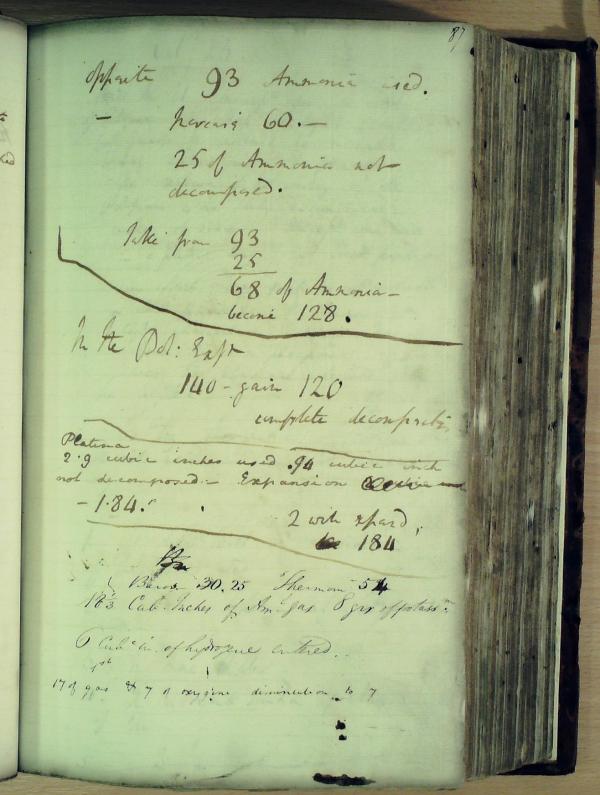 87
opposite 93 Ammonia used.
- Increase 60.-
25 of Ammonia not
decomposed.
Take from 93
25
68 of Ammonia -
become 128.
In the Pot: Expt
140 - gain 120
complete decomposition
Platina
2.9 cubic inches used .94 cubic inch
not decomposed - Expansion
- 1.84.
2 will expand
184
Barom 30.25 Thermom 54
Cub Inches of Am gas 8 grs of potassm
6 Cubc in. of hydrogene entered.
1st
17 of gas & 7 of oxygene diminution to 7